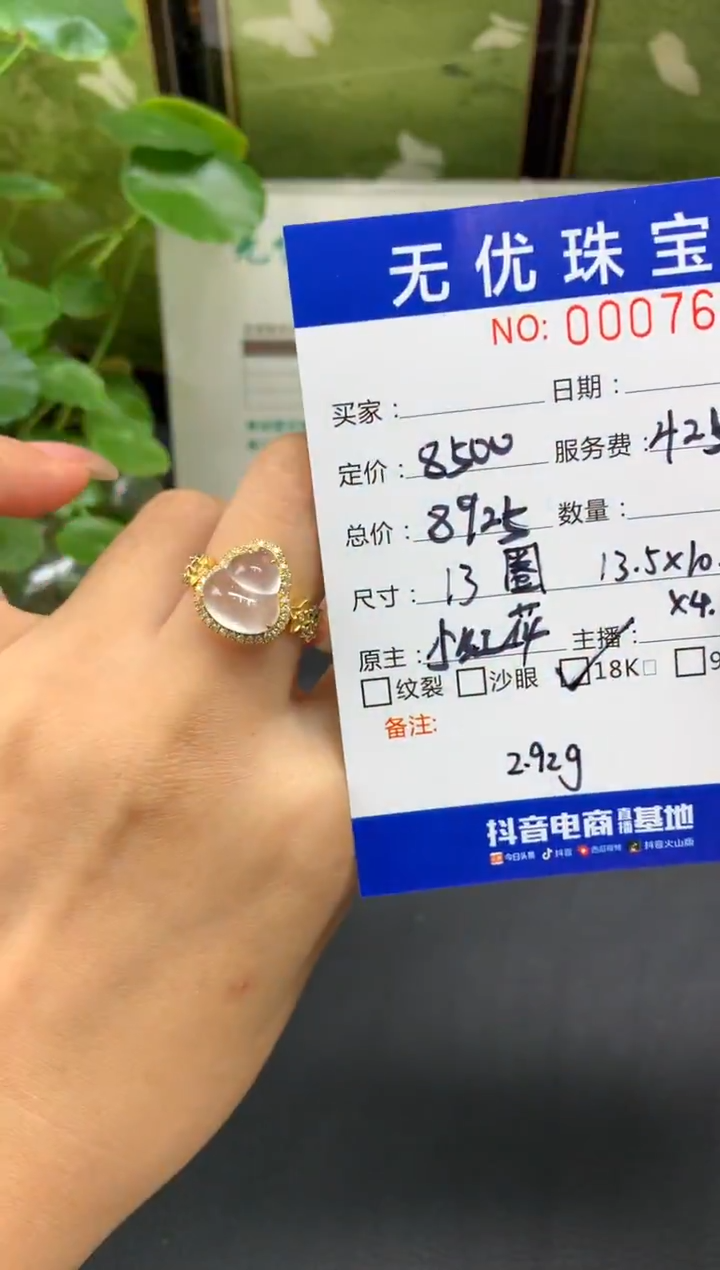 无优珠宝
NO: 00076
买家： 日期：
定价：8500 服务费：425
总价：8925 数量：
尺寸：13 圈 13.5×10.
×4.
原主：小红花 主播：
纹裂 沙眼 18K 9
备注：
2.92g
抖音电商直播基地
今日头条 抖音 西瓜视频 抖音火山版